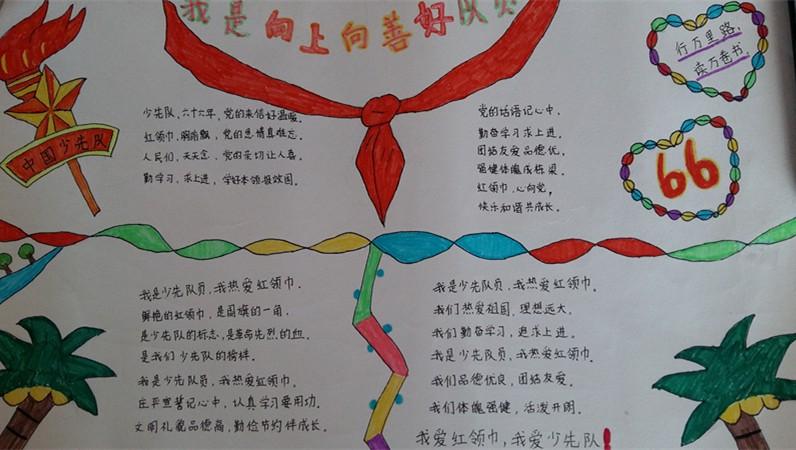 我是向上向善好队员
中国少先队
少先队,六十六年,党的来信好温暖。
红领巾,胸前飘,党的恩情真难忘。
人民们,天天念,党的亲切让人喜。
勤学习,求上进,学好本领报效国。
党的话语记心中,
勤奋学习求上进。
团结友爱品德优,
强健体魄成栋梁。
红领巾,心向党,
快乐和谐共成长。
行万里路,
读万卷书。
66
我是少先队员,我热爱红领巾。
鲜艳的红领巾,是国旗的一角,
是少先队的标志,是革命先烈的血,
是我们少先队的榜样。
我是少先队员,我热爱红领巾,
庄严宣誓记心中,认真学习要用功。
文明礼貌品德高,勤俭节约伴成长。
我是少先队员,我热爱红领巾。
我们热爱祖国,理想远大。
我们勤奋学习,追求上进。
我是少先队员,我热爱红领巾。
我们品德优良,团结友爱。
我们体魄强健,活泼开朗。
我爱红领巾,我爱少先队!